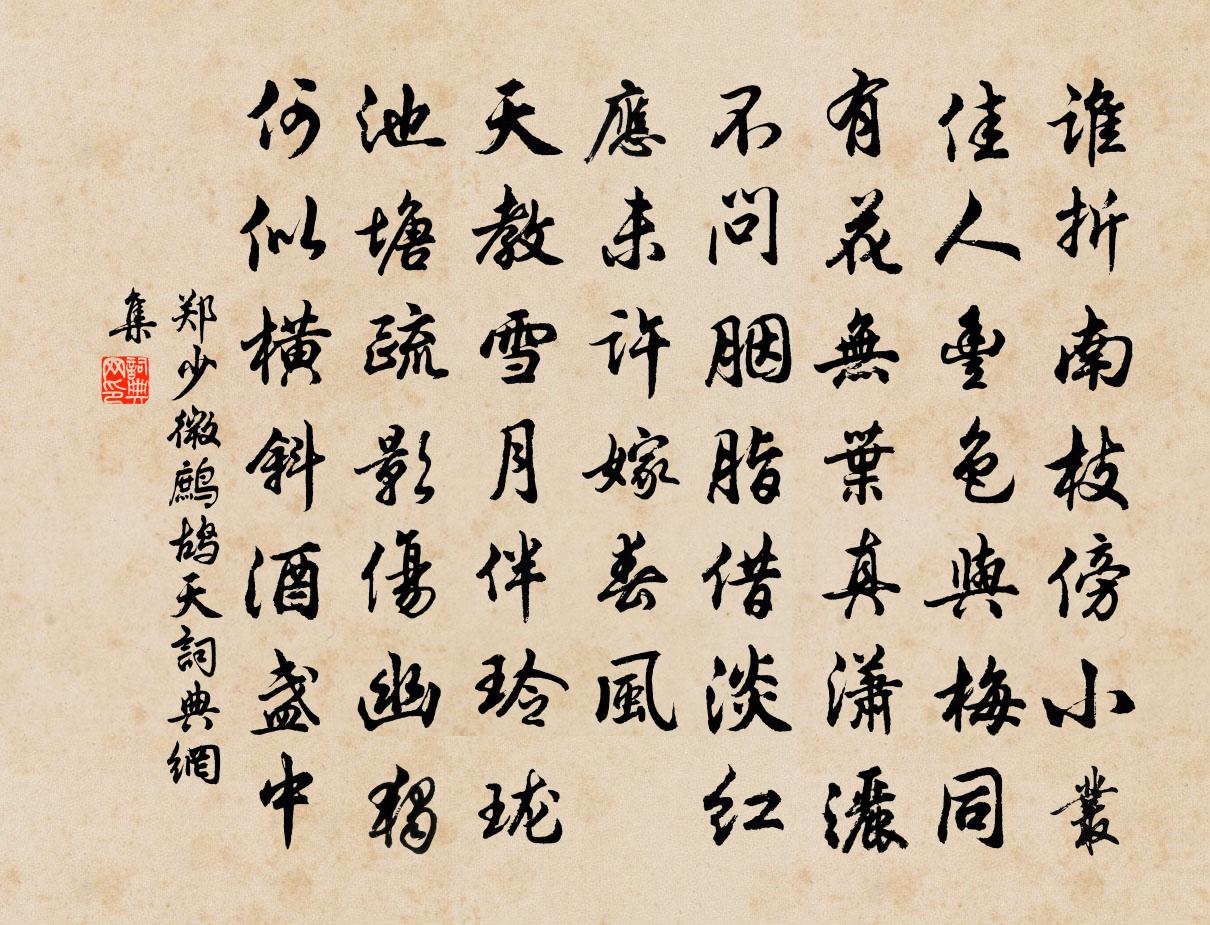 誰折南枝傍小叢
佳人豐色與梅同
有花無葉真瀟灑
不問胭脂借淡红
應未許嫁春風
天教雪月伴玲珑
池塘疏影傷幽獨
何似橫斜酒盞中
郑少微鷓鴣天詞典網
集
詞典网印